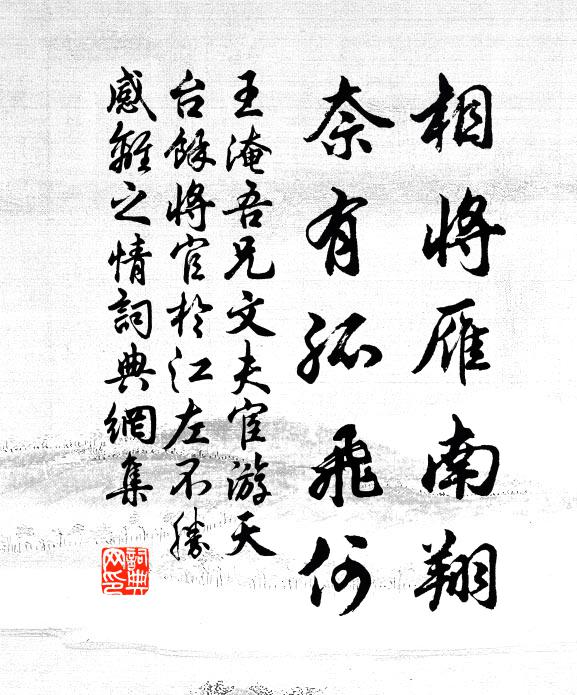 相將雁南翔
奈有孤飛何
王淹吾兄文夫宦游天
台餘將官於江左不勝
感離之情詞典網集
詞典網印